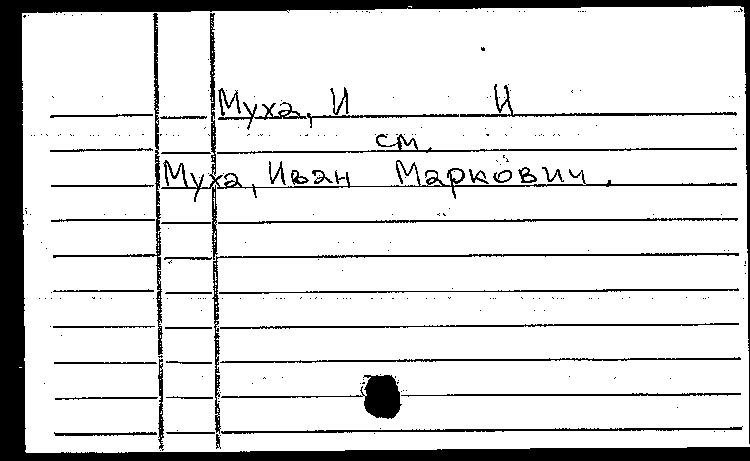 Муха, И И
см.
Муха, Иван Маркович.